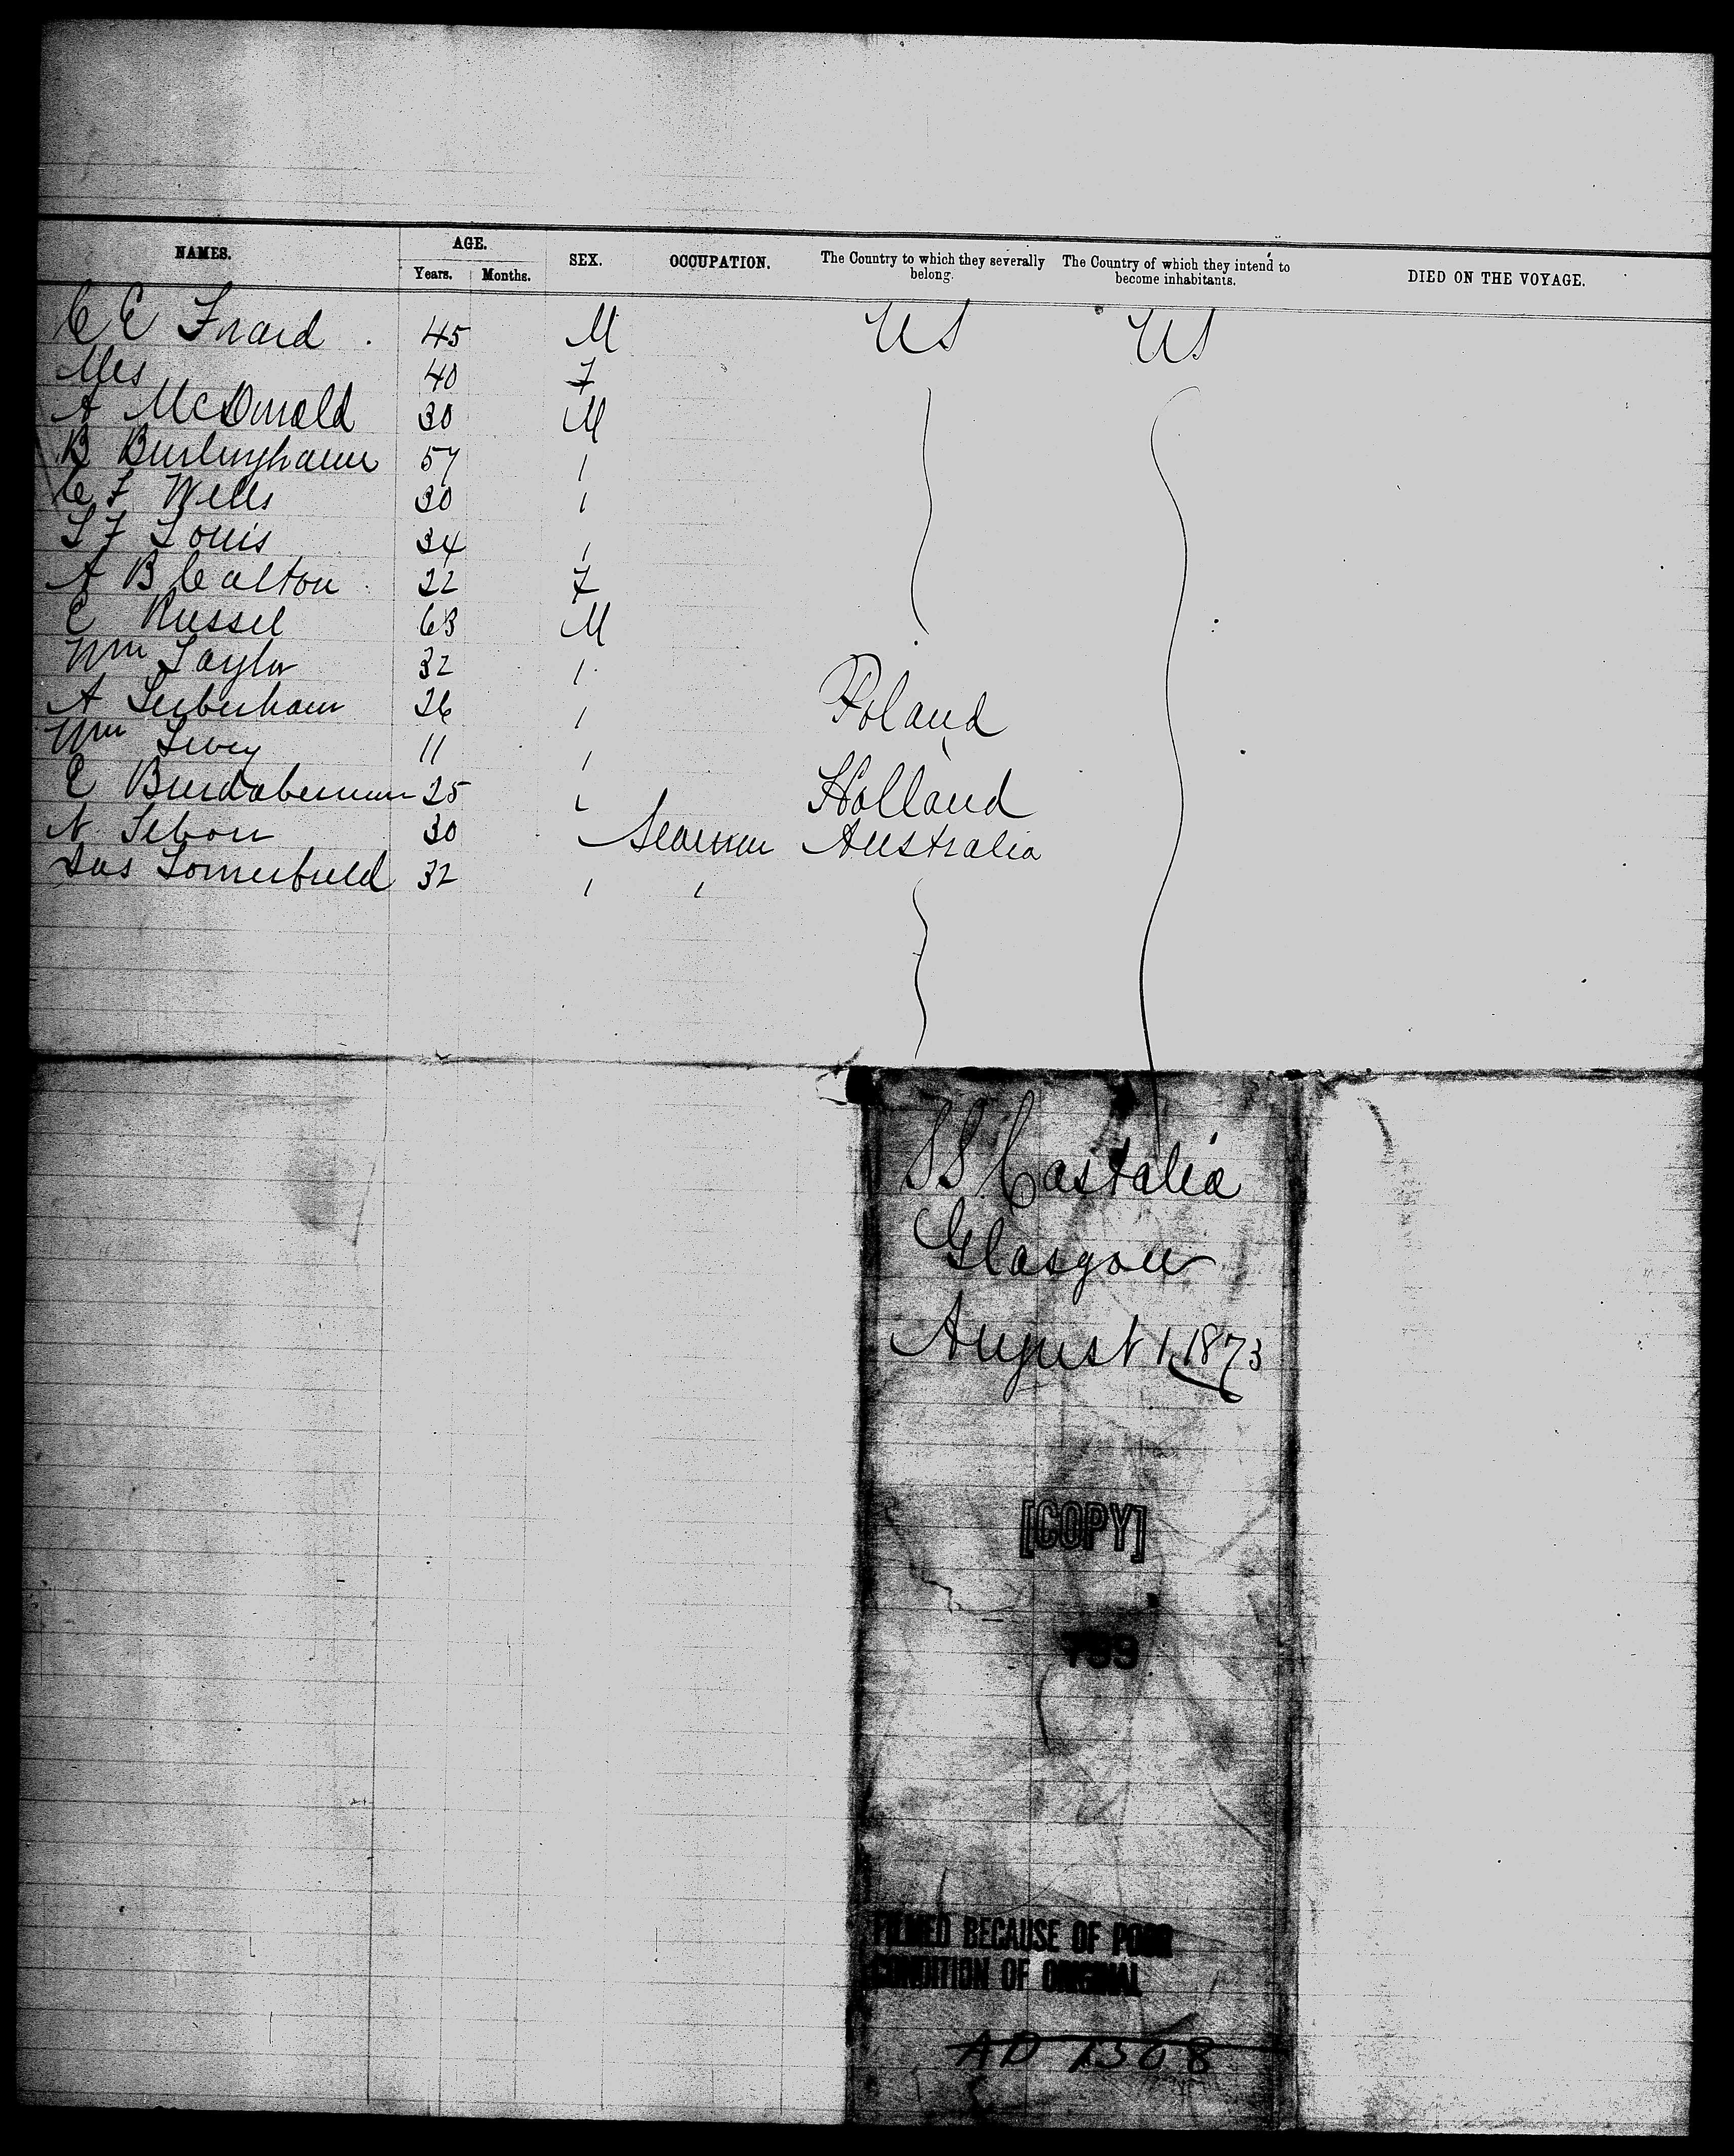 NAMES. AGE. SEX. OCCUPATION. The Country to which they severally belong. The Country of which they intend to become inhabitants. DIED ON THE VOYAGE.
Years. Months.
C E 45 M US US
Mrs 40 F
A McDonald 30 M
B Burlinghame 57 1
C F Wells 30 1
S F Louis 34 1
A B Calton 22 F
C Russel 63 M
Wm Taylor 32 1
A 26 1 Poland
Wm 11 1
E 25 Holland
N 30 Seaman Australia
Jas Somerfield 32 1 1
SS Castalia
Glasgow
August 1, 1873
[COPY]
799
FILMED BECAUSE OF POOR
CONDITION OF ORIGINAL
AD 1568